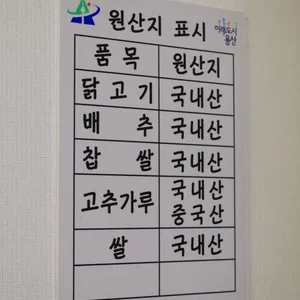 원산지 표시
미래도시
용산
품 목 원산지
닭고기 국내산
배 추 국내산
찹 쌀 국내산
고추가루 국내산
중국산
쌀 국내산